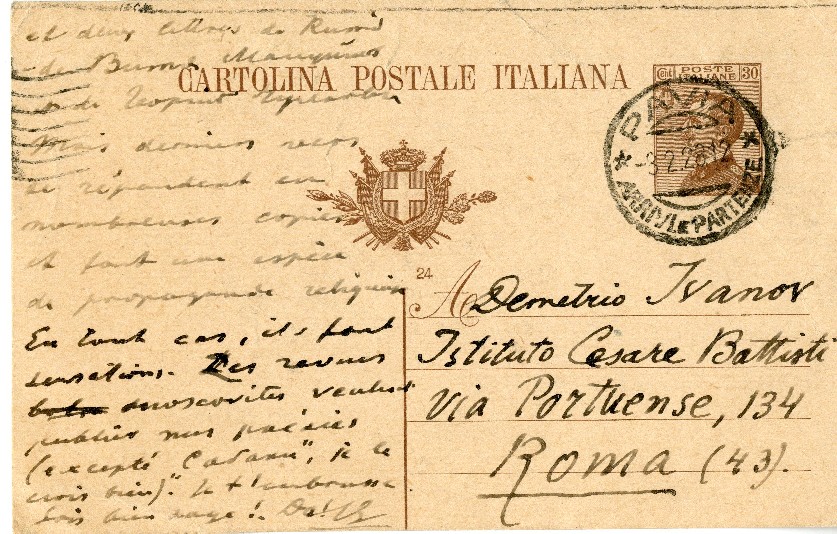 et deux lettres de
de
CARTOLINA POSTALE ITALIANA
Cent POSTE ITALIANE 30
PAVIA
ARRIVI E PARTENZE
et de
Mais derniers vers
se répandent en
nombreuses copies
et font une espèce
de propagande religieuse
En tout cas, ils font
sensation. Les revues
moscovites veulent
publier mes poésies
(excepté je le
crois bien)". Je t'embrasse
Sois bien sage!
24
A Demetrio Ivanov
Istituto Cesare Battisti
Via Portuense, 134
Roma (43).